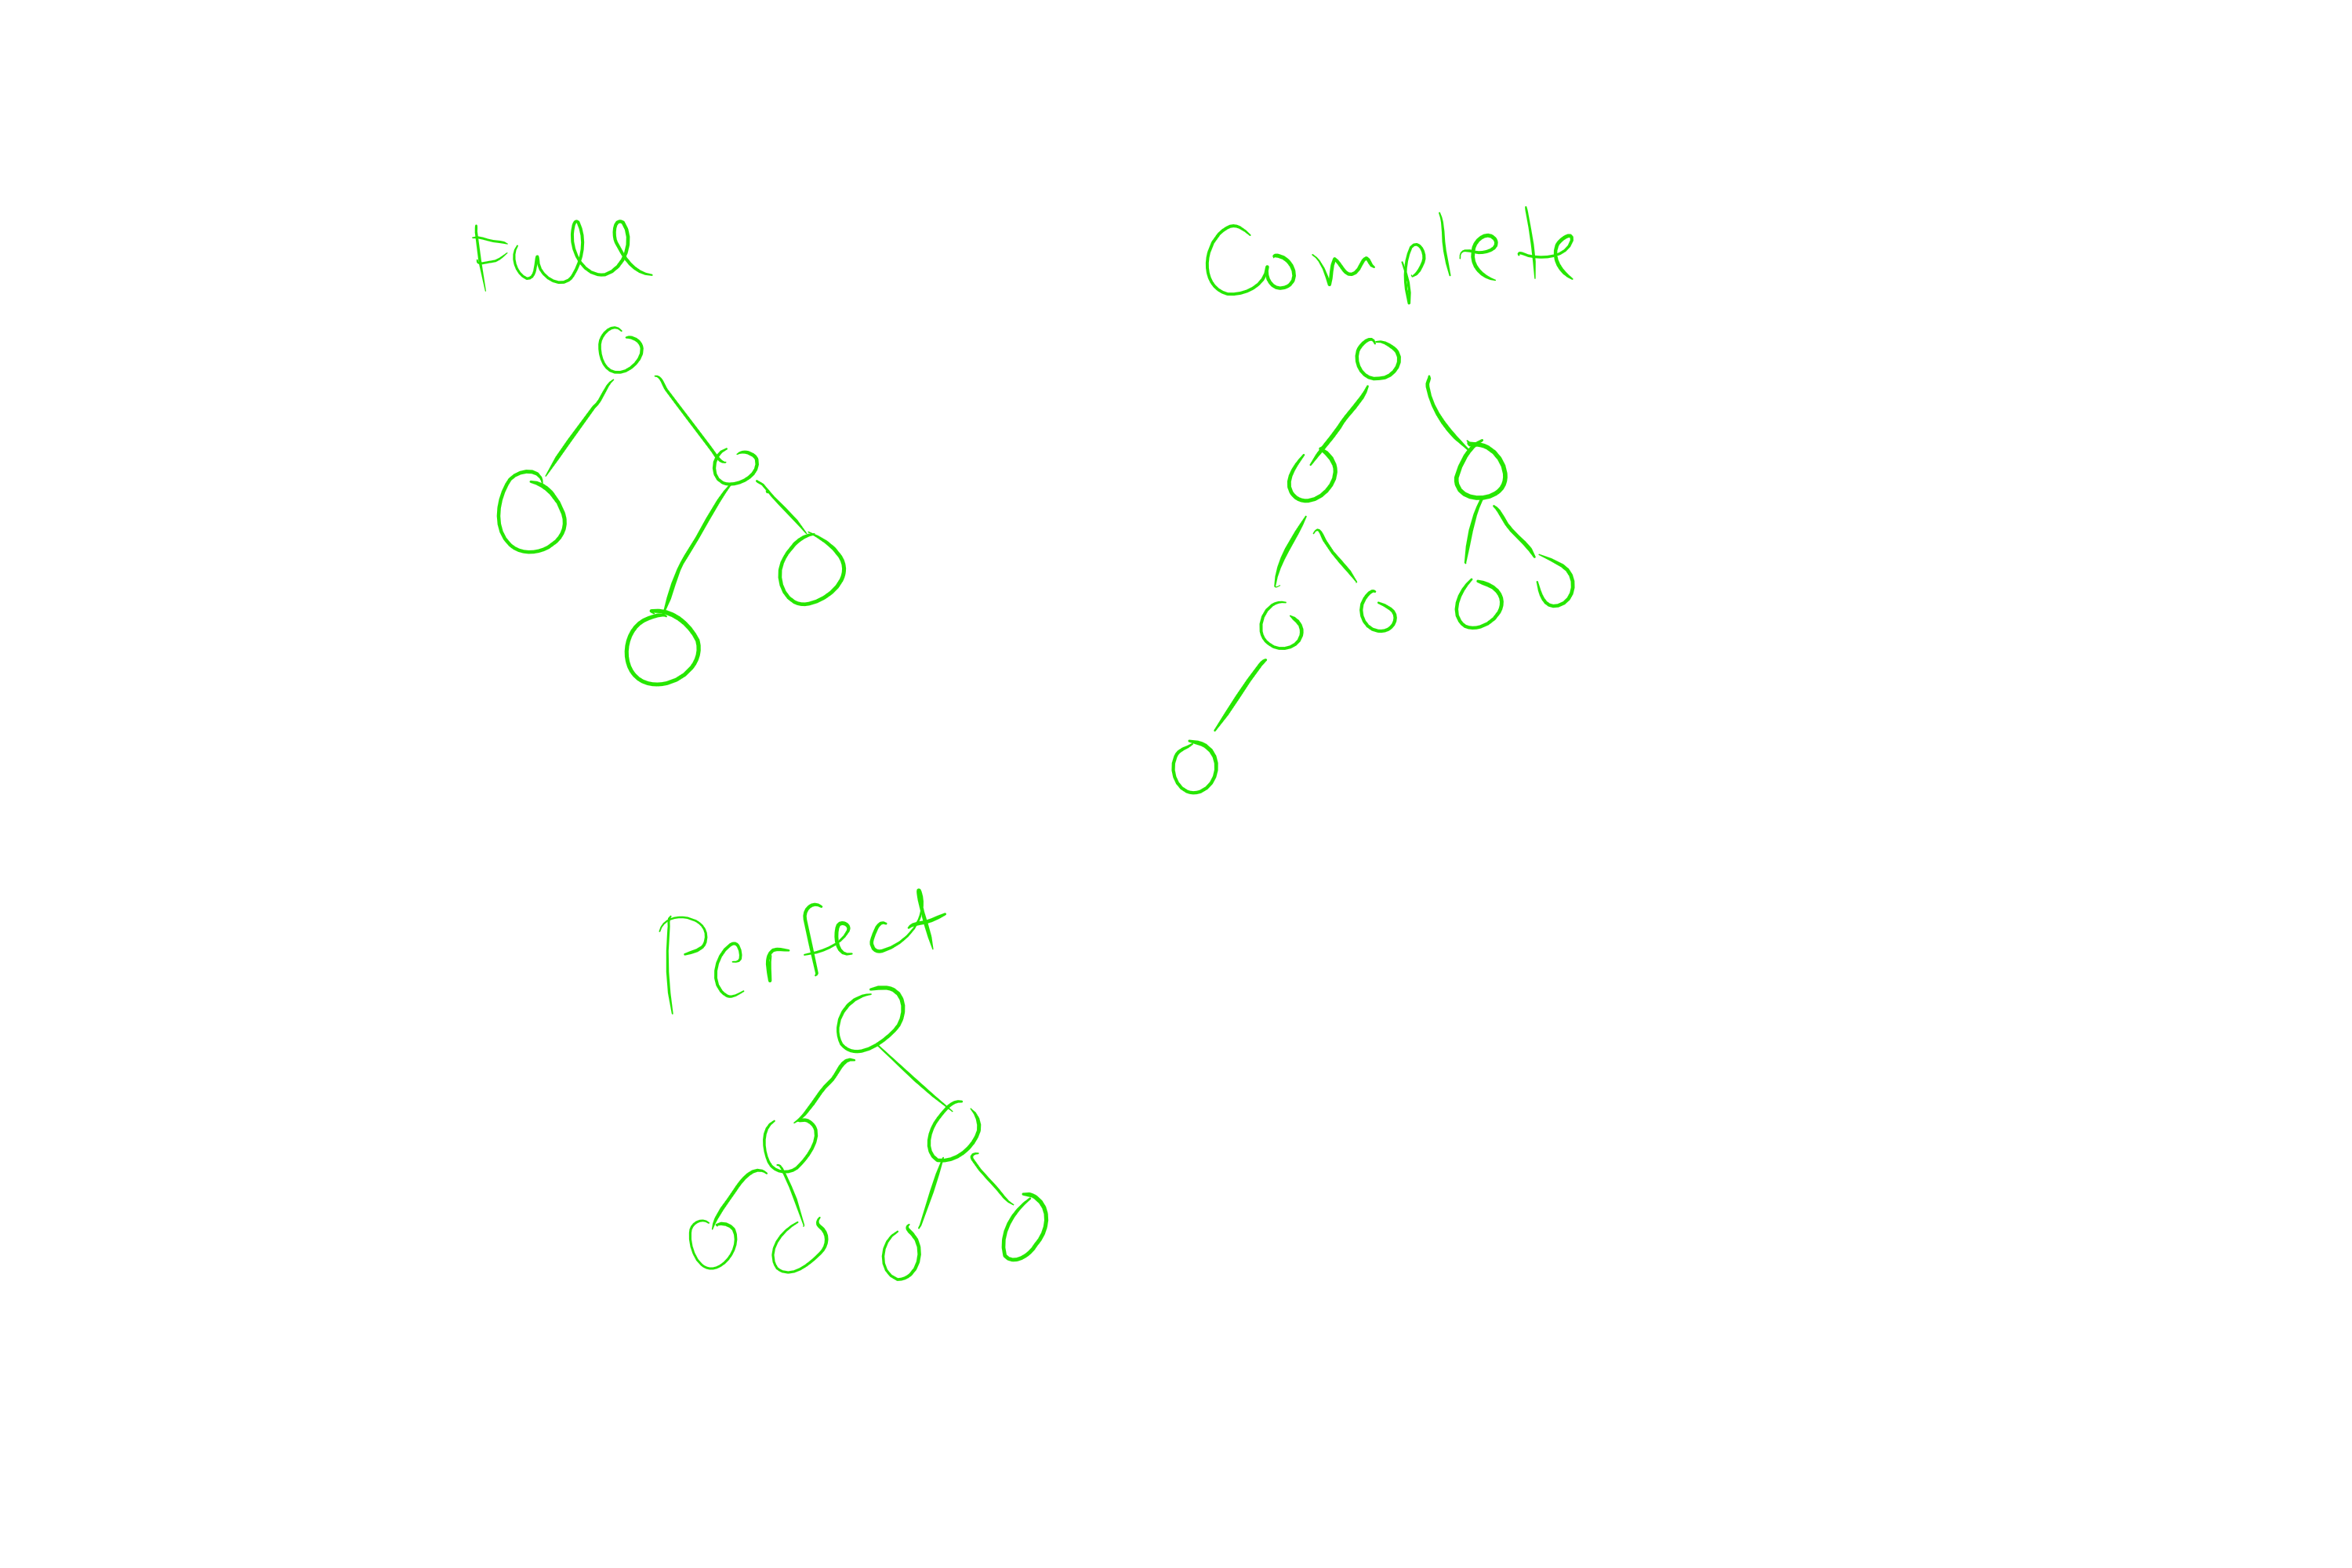 Full
Complete
Perfect